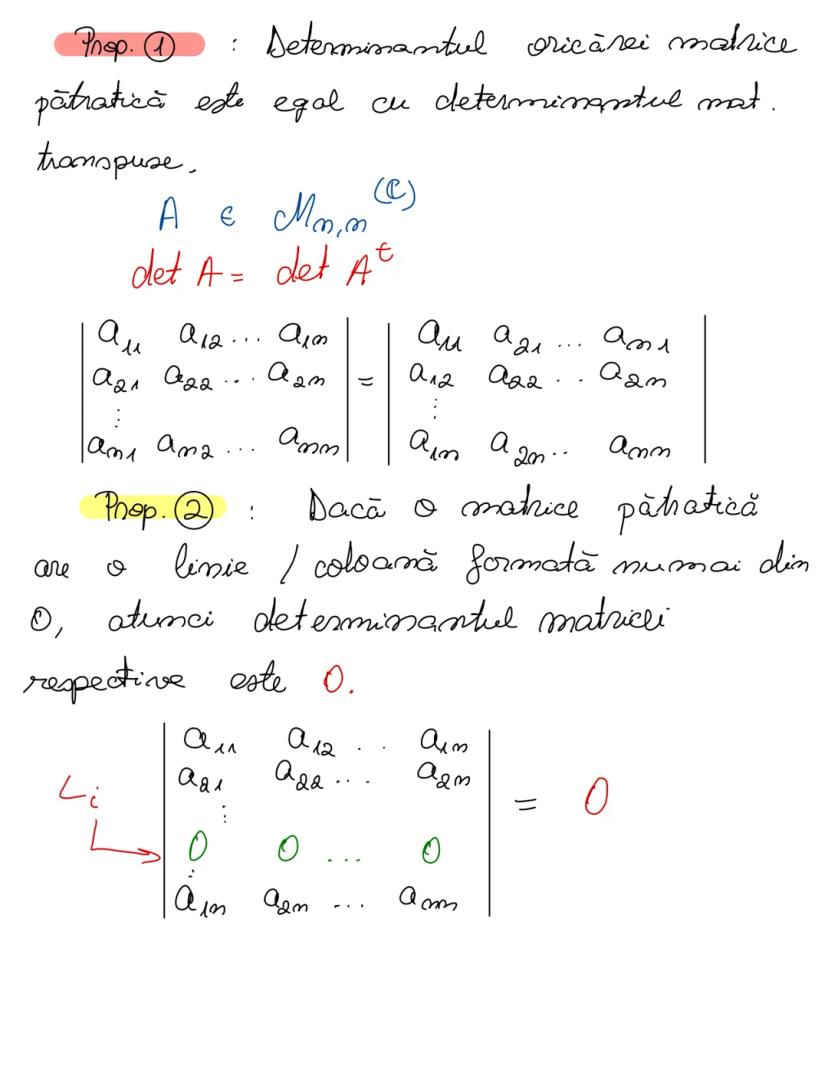 Prop. ① : Determinantul oricărei matrice
pătratică este egal cu determinantul mat.
transpuse.
A ∈ Mn,n (ℂ)
det A = det Aᵗ
| a11 a12 ... a1n | = | a11 a21 ... an1 |
| a21 a22 ... a2n | | a12 a22 .. a2n |
⋮ ⋮
| an1 an2 ... ann | | a1n a2n .. ann |
Prop. ② : Dacă o matrice pătratică
are o linie / coloană formată numai din
0, atunci determinantul matricei
respective este 0.
| a11 a12 .. a1n |
| a21 a22 ... a2n |
Li ⋮ = 0
| 0 0 ... 0 |
⋮
| a1n a2n ... ann |